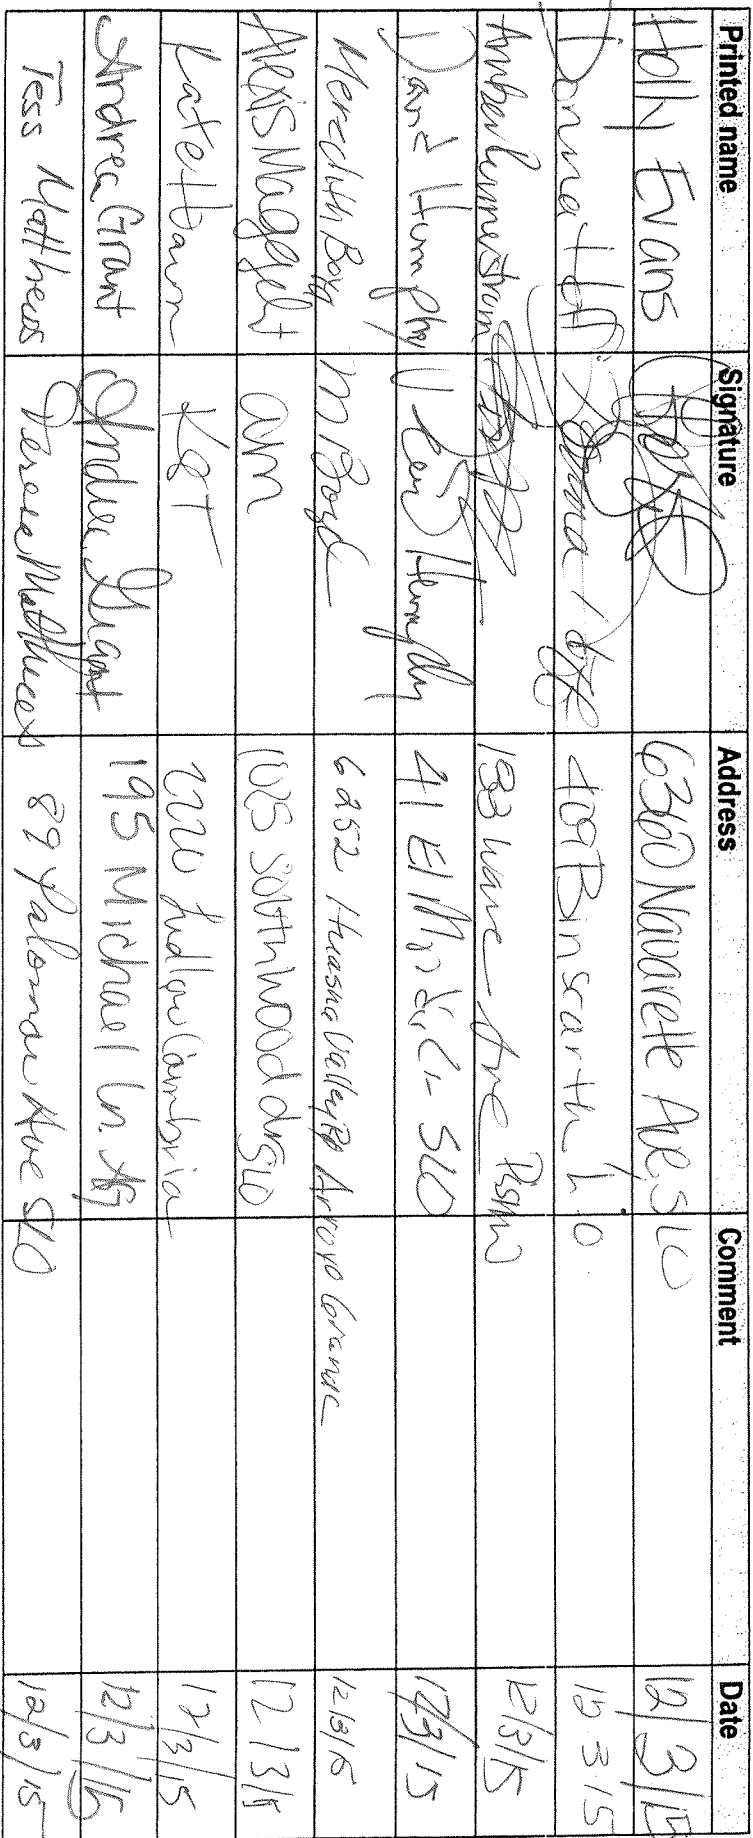 Printed name Signature Address Comment Date
Holly Evans 6360 Navarette Ave, SLO 12/3/15
Donna 409 Binscarth L.O. 12 3 15
Amber 188 Wave Ave Pismo 12/3/15
David Humphry David Humphry 41 El SLO 12/3/15
Meredith Boyd M Boyd 6252 Huasna Valley Rd Arroyo Grande 12/3/15
Alexis am 1025 Southwood dr SLO 12/3/15
Kate Ludlow Cambria 12/3/15
Andrea Grant Andrea Grant 195 Michael Ln. AG 12/3/15
Tess Matthews Teresa Matthews 89 Palomar Ave SLO 12/3/15